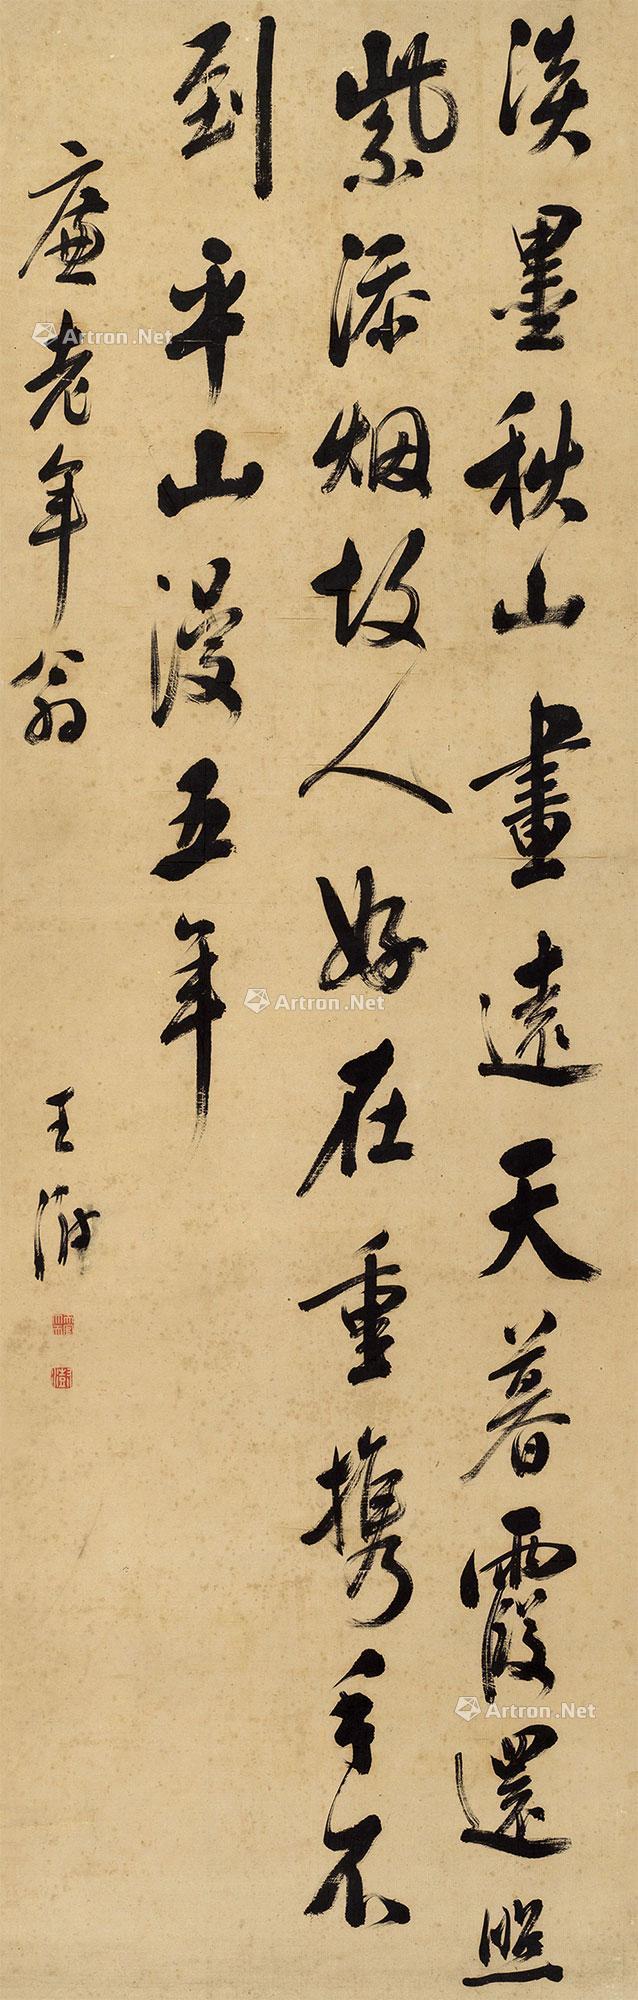 淡墨秋山畫遠天暮霞還照
紫添烟故人好在重攜手不
到平山漫五年
廉老年翁
王澍
Artron.Net
Artron.Net
Artron.Net